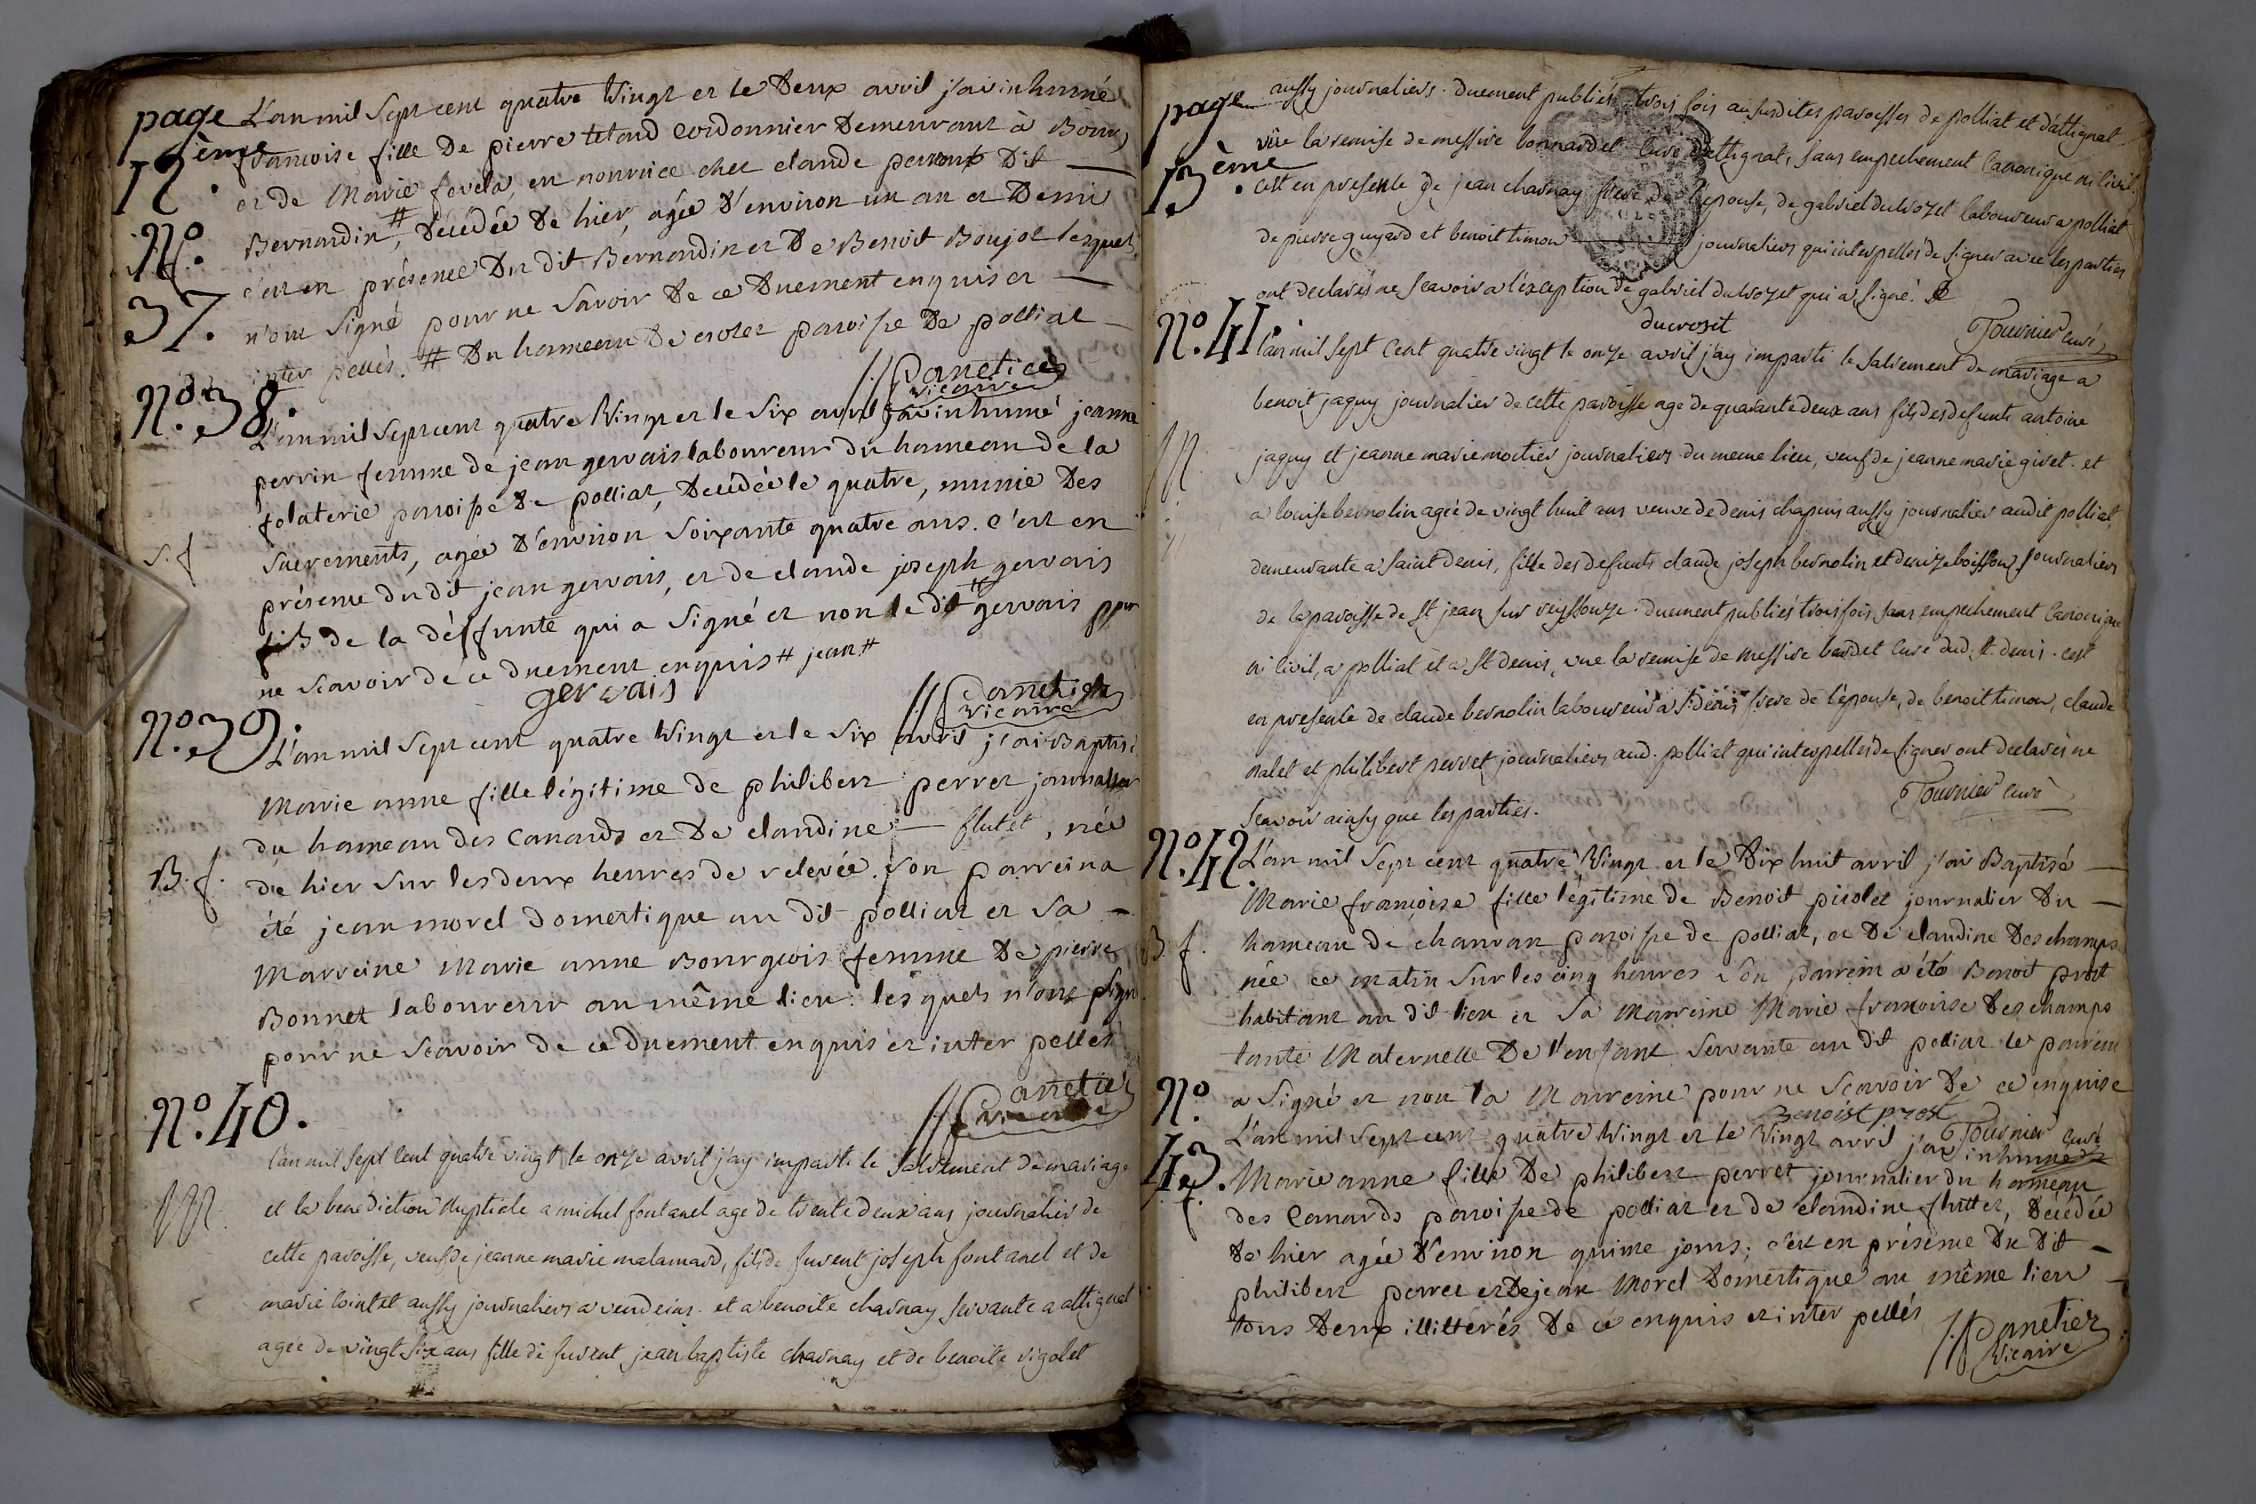 page 12.ème
N.º 37.
S. f.
L'an mil sept cent quatre vingt et le deux avril j'ai inhumé
francoise fille de pierre tetoud cordonnier demeurant à Bourg
et de Marie in nourrice chez claude perroux dit —
Bernardin #, décédée de hier, agée d'environ un an et demi
c'est en présence du dit Bernardin et de Benoit Boujot lesquels
n'ont signé pour ne savoir de ce duement enquis et —
inter pellés. # du hameau de crozet paroisse de polliat —
Panetier
vicaire
N.º 38.
L'an mil sept cent quatre vingt et le six avril j'ai inhumé jeanne
perrin femme de jean gervais laboureur du hameau de la
folaterie paroisse de polliat, décédée le quatre, munie des
S. f
sacrements, agée d'environ soixante quatre ans. c'est en
présence du dit jean gervais, et de claude joseph gervais
fils de la déffunte qui a signé et non le dit # gervais pour
ne scavoir de ce duement enquis # jean #
gervais
Panetier
vicaire
N.º 39.
L'an mil sept cent quatre vingt et le six avril j'ai Baptisé
Marie anne fille légitime de philibert perret journalier
du hameau des canards et de claudine — flutet, née
B. f.
de hier sur les deux heures de relevée. son parrein a
été jean morel domestique au dit polliat et sa —
Marreine Marie anne Bourgeois femme de pierre
Bonnet laboureur au même lieu. lesquels n'ont signé
pour ne scavoir de ce duement enquis et inter pellés
Panetier
vicaire
N.º 40.
l'an mil sept cent quatre vingt le onze avril j'ay imparti le sacrement de mariage
M.
et la benediction nuptiale a michel fontanel age de trente deux ans journalier de
cette paroisse, veuf de jeanne marie malamard, fils de furent joseph fontanel et de
marie cointet aussy journaliers a vendeins. et a benoite charnay servante a attignat
agée de vingt six ans fille de furent jean baptiste charnay et de benoite vigolet
page 13.ème
aussy journaliers. duement publiés trois fois au susdites paroisses de polliat et d'attignat
vüe la remise de messire bonnardel curé d'attignat, sans empechement canonique ni civil.
c'est en presente de jean charnay frere de l'épouse, de gabriel ducrozet laboureur a polliat
de pierre guyard et benoit timon — journaliers qui interpellés de signer avec les parties
ont declarés ne scavoir a l'exception de gabriel ducrozet qui a signé.
ducroset
Tournier curé
N.º 41.
l'an mil sept cent quatre vingt le onze avril j'ay imparti le sacrement de mariage a
benoit jaguy journalier de cette paroisse age de quarante deux ans fils des defunts antoine
M.
jaguy et jeanne marie mortier journaliers du meme lieu, veuf de jeanne marie givet. et
a louise bernolin agée de vingt huit ans veuve de denis chapuis aussy journalier audit polliat,
demeurante a saint denis, fille des defunts claude joseph bernolin et denize boisson journaliers
de la paroisse de st jean sur reyssouze. duement publiés trois fois sans empechement canonique
ni civil, a polliat et a st denis, vue la remise de messire bardet curé dud. st. denis. c'est
en presente de claude bernolin laboureur a st denis frere de l'épouse, de benoit timon, claude
nalet et philibert perret journaliers aud. polliat qui interpellés de signer ont declarés ne
scavoir ainsy que les parties.
Tournier curé
N.º 42.
L'an mil sept cent quatre vingt et le dix huit avril j'ai Baptisé —
Marie francoise fille légitime de Benoit picolet journalier du —
B. f.
hameau de chanvan paroisse de polliat, et de claudine deschamps
née ce matin sur les cinq heures son parrein a été Benoit prost
habitant au dit lieu et sa Marreine Marie francoise deschamps
tante Maternelle de l'enfant servante au dit polliat le parrein
a signé et non la Marreine pour ne scavoir de ce enquise
Benoist prost
Tournier curé
N.º 43.
f.
L'an mil sept cent quatre vingt et le vingt avril j'ai inhumé
Marie anne fille de philibert perret journalier du hameau
des Canards paroisse de polliat et de claudine flutet, décédée
de hier agée d'environ quinze jours; c'est en présence du dit —
philibert perret et de jean Morel domestique au même lieu —
tous deux illittérés de ce enquis et inter pellés
Panetier
vicaire